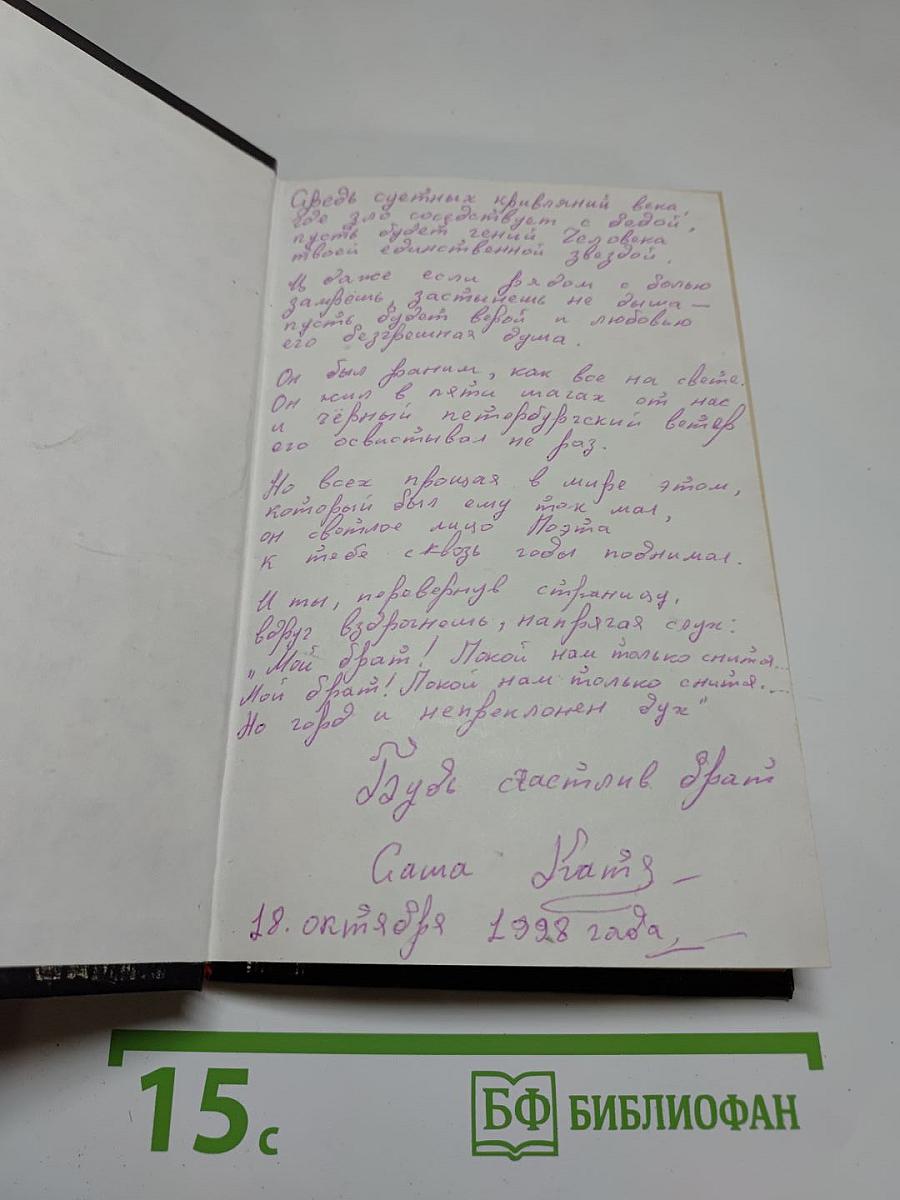 Средь суетных кривляний века,
где зло соседствует с бедой,
пусть будет гений Человека
твоей единственной звездой.
И даже если рядом с болью
замрёшь, застынешь не дыша —
пусть будет верой и любовью
его безгрешная душа.
Он был раним, как все на свете.
Он жил в пяти шагах от нас
и чёрный петербургский ветер
его освистывал не раз.
Но всех прощая в мире этом,
который был ему так мал,
он светлое лицо Поэта
к тебе сквозь годы поднимал.
И ты, перевернув страницу,
вдруг вздрогнешь, напрягая слух:
„Мой брат! Покой нам только снится...
Мой брат! Покой нам только снится....
Но горд и непреклонен дух"
Будь счастлив брат
Саша Катя
18. октября 1998 года,
15 с
БФ БИБЛИОФАН